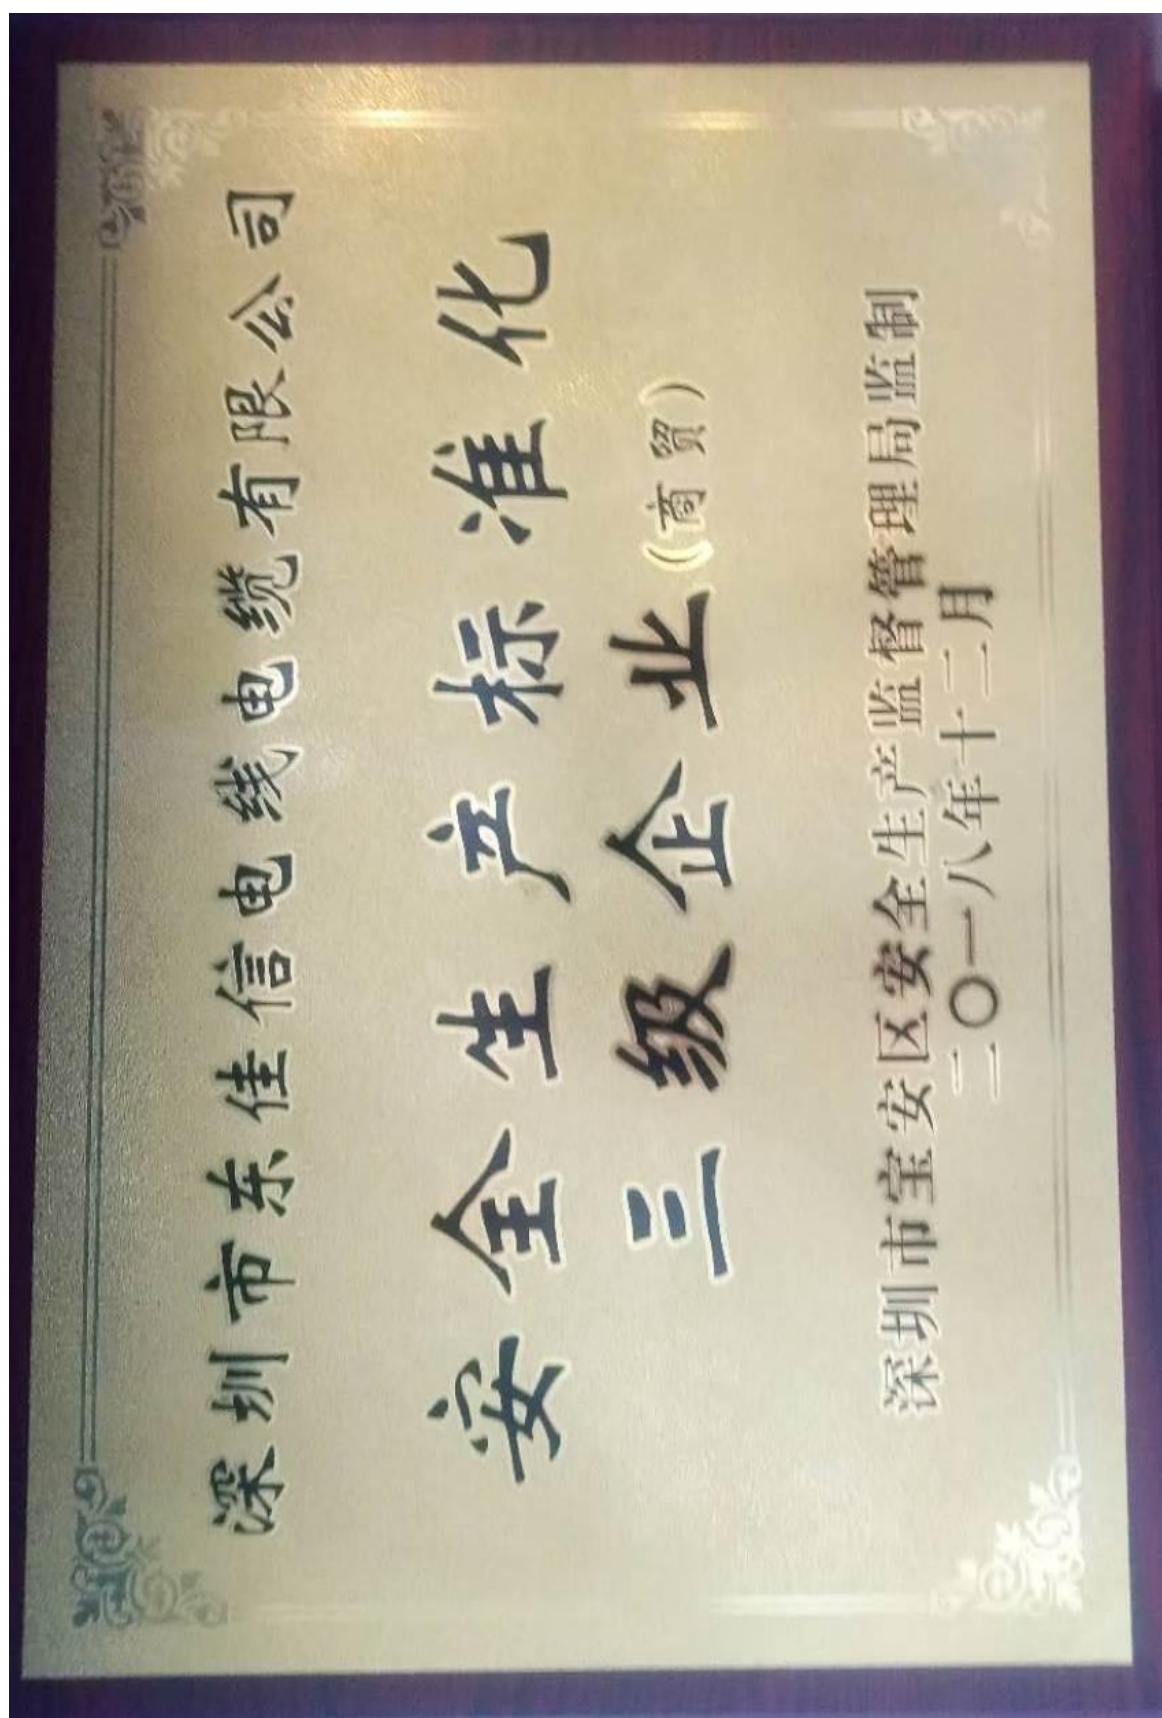 深圳市东佳信电线电缆有限公司
安全生产标准化
三级企业(商贸)
深圳市宝安区安全生产监督管理局监制
二〇一八年十二月